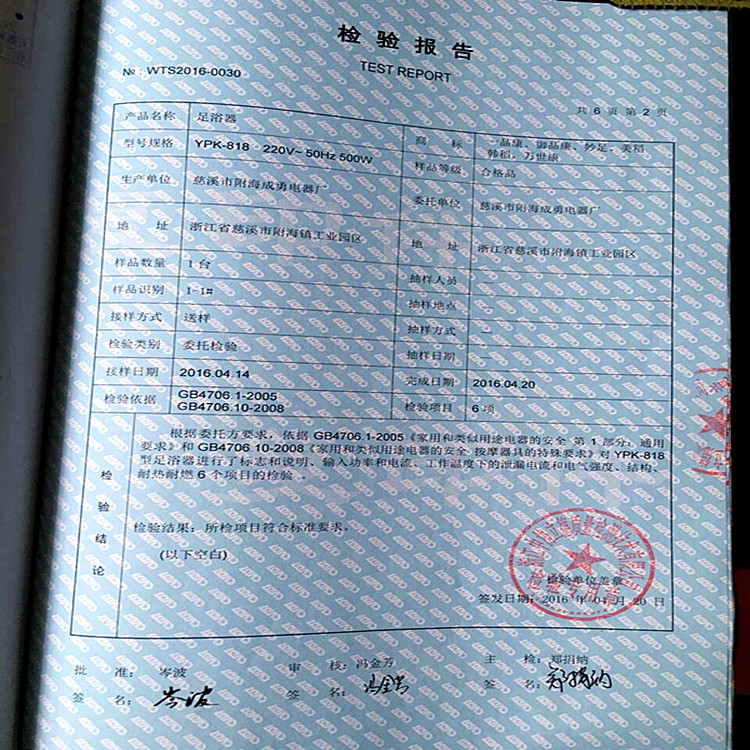 检验报告
TEST REPORT
№：WTS2016-0030
共 6 页 第 2 页
产品名称 足浴器 商标 一品康、御品康、妙足、美稻
韩稻、万世康
型号规格 YPK-818 220V~ 50Hz 500W 样品等级 合格品
生产单位 慈溪市附海成勇电器厂 委托单位 慈溪市附海成勇电器厂
地址 浙江省慈溪市附海镇工业园区 地址 浙江省慈溪市附海镇工业园区
样品数量 1 台 抽样人员 —
样品识别 1-1# 抽样地点 —
接样方式 送样 抽样方式 —
检验类别 委托检验 抽样日期 —
接样日期 2016.04.14 完成日期 2016.04.20
检验依据 GB4706.1-2005
GB4706.10-2008 检验项目 6 项
检验结论
根据委托方要求，依据 GB4706.1-2005《家用和类似用途电器的安全 第 1 部分：通用
要求》和 GB4706.10-2008《家用和类似用途电器的安全 按摩器具的特殊要求》对 YPK-818
型足浴器进行了标志和说明、输入功率和电流、工作温度下的泄漏电流和电气强度、结构、
耐热耐燃 6 个项目的检验 。
检验结果：所检项目符合标准要求。
(以下空白)
检验单位盖章
签发日期：2016 年 04 月 20 日
批准：岑波 审核：冯金芳 主检：郑捐纳
签名：岑波 签名：冯金芳 签名：郑捐纳